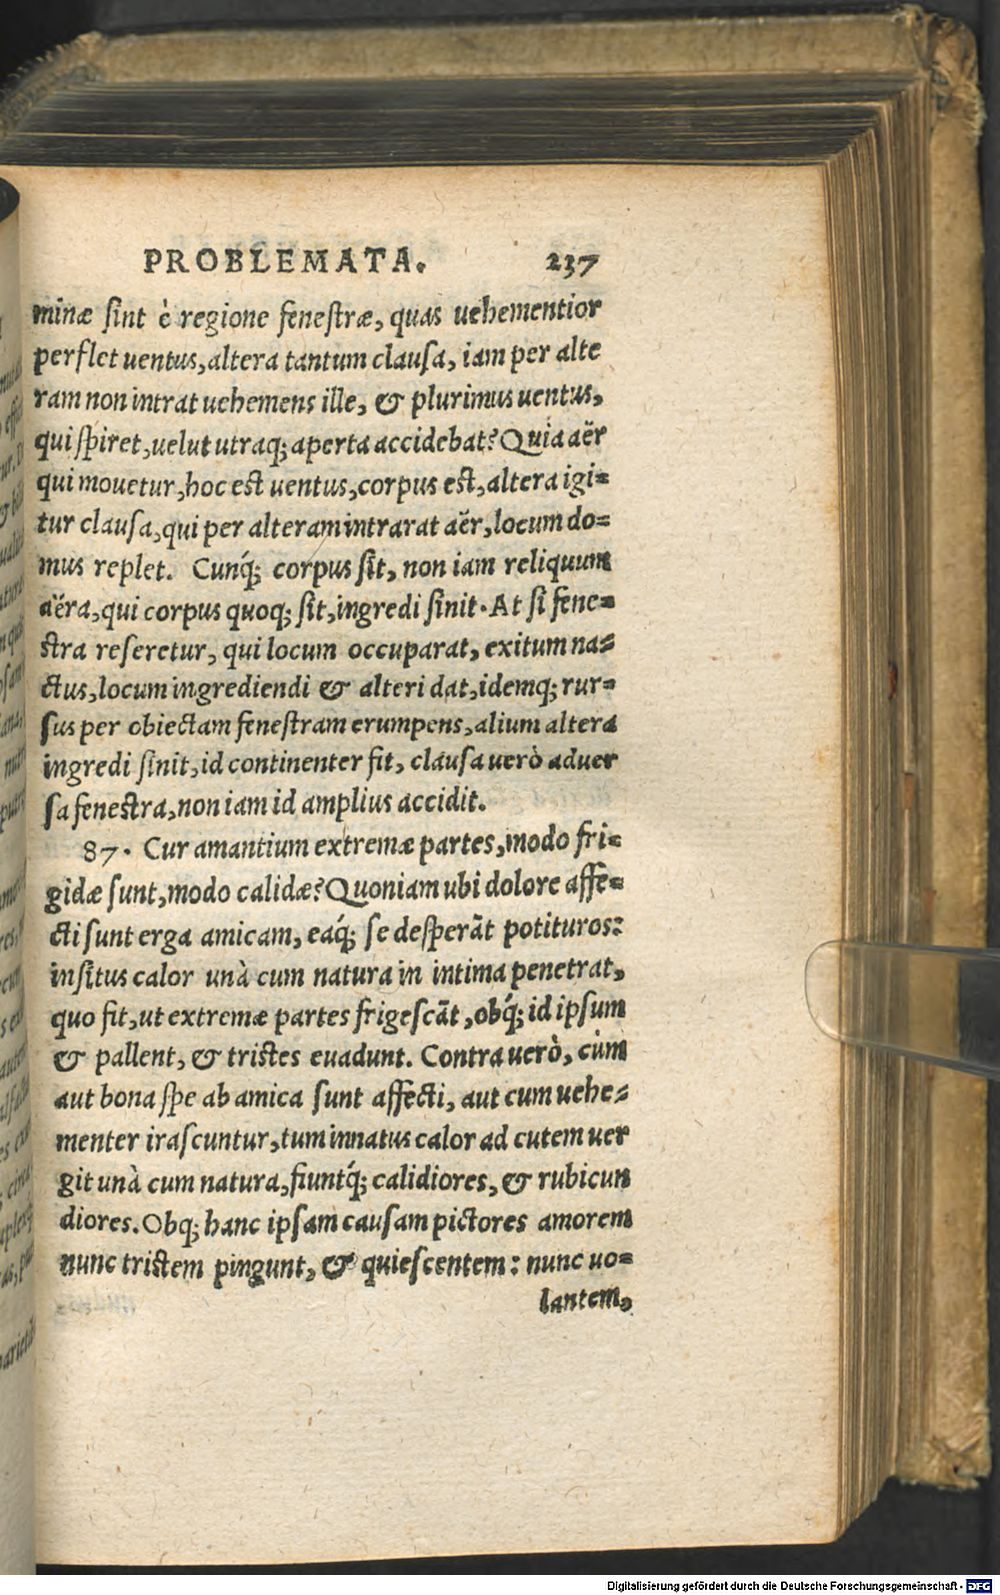 PROBLEMATA. 237
minæ sint è regione fenestræ, quas uehementior
perflet uentus, altera tantum clausa, iam per alte
ram non intrat uehemens ille, & plurimus uentus,
qui spiret, uelut utraq; aperta accidebat? Quia aër
qui mouetur, hoc est uentus, corpus est, altera igi=
tur clausa, qui per alteram intrarat aër, locum do=
mus replet. Cunq́; corpus sit, non iam reliquum
aëra, qui corpus quoq; sit, ingredi sinit. At si fene=
stra reseretur, qui locum occuparat, exitum na=
ctus, locum ingrediendi & alteri dat, idemq; rur=
sus per obiectam fenestram erumpens, alium altera
ingredi sinit, id continenter fit, clausa uerò aduer
sa fenestra, non iam id amplius accidit.
87. Cur amantium extremæ partes, modo fri=
gidæ sunt, modo calidæ? Quoniam ubi dolore affe=
cti sunt erga amicam, eáq; se desperãt potituros:
insitus calor unà cum natura in intima penetrat,
quo fit, ut extremæ partes frigescãt, obq́; id ipsum
& pallent, & tristes euadunt. Contra uerò, cùm
aut bona spe ab amica sunt affecti, aut cum uehe=
menter irascuntur, tum innatus calor ad cutem uer
git unà cum natura, fiuntq́; calidiores, & rubicun
diores. Obq; hanc ipsam causam pictores amorem
nunc tristem pingunt, & quiescentem: nunc uo=
lantem,
Digitalisierung gefördert durch die Deutsche Forschungsgemeinschaft - DFG